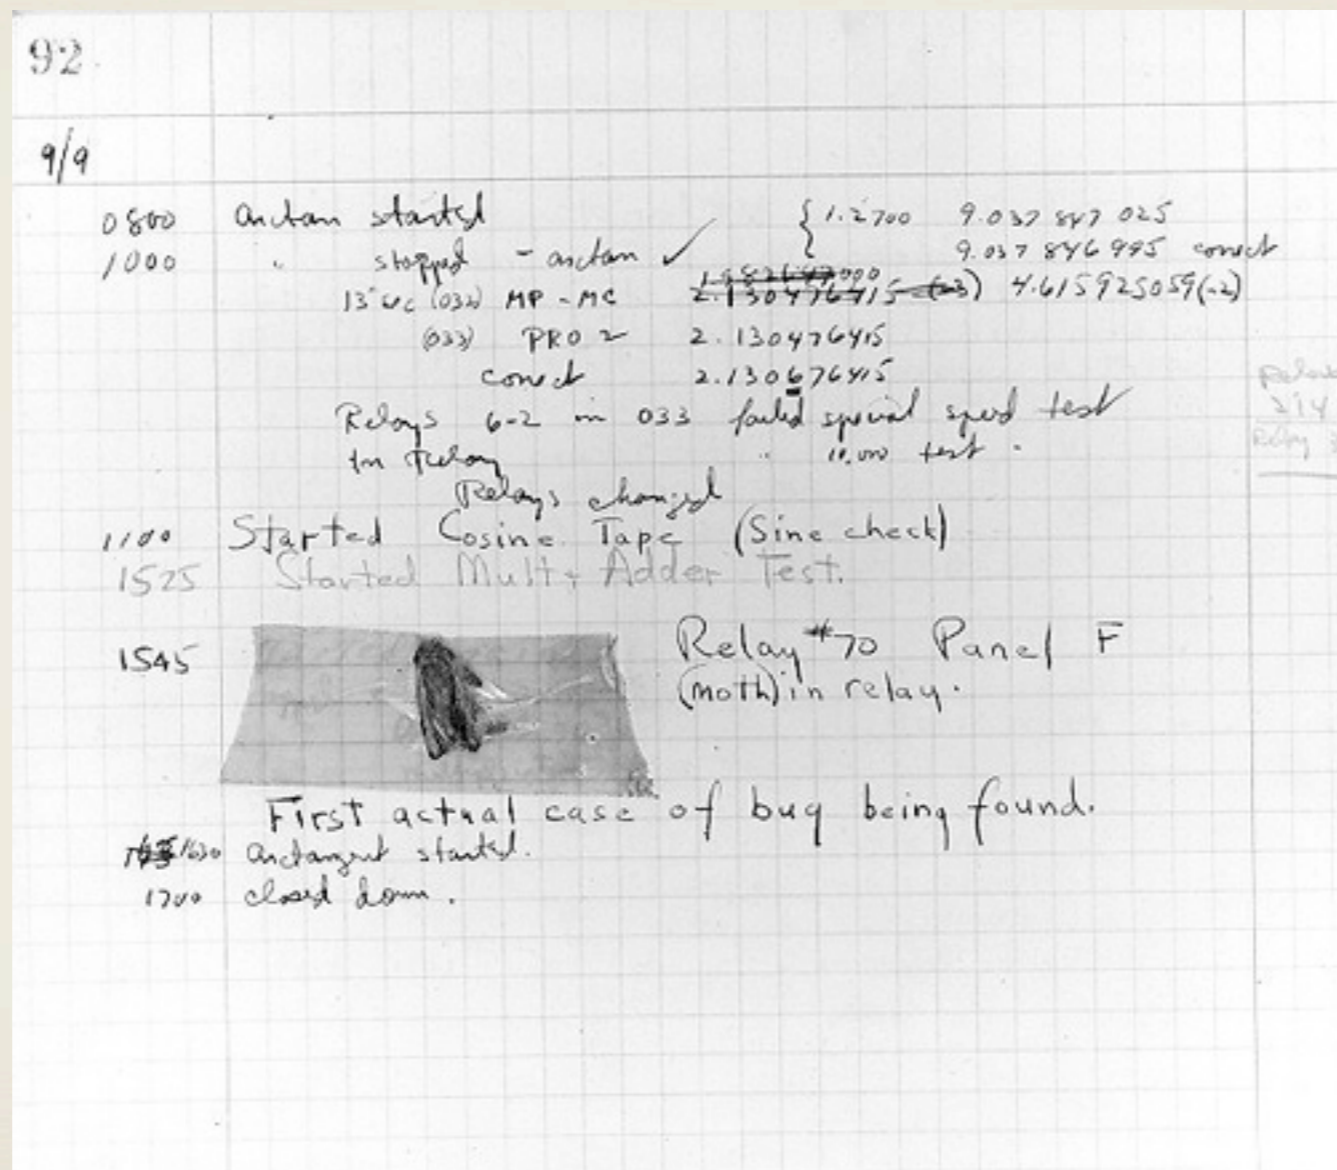 92
9/9
0800 Antan started { 1.2700 9.037 847 025
1000 " stopped - antan ✓ 9.037 846 995 correct
13"uc (032) MP - MC 2.130476415 (-3) 4.615925059(-2)
(033) PRO 2 2.130476415
correct 2.130676415
Relays 6-2 in 033 failed special speed test
In Relay " 10,000 test .
Relays changed
1100 Started Cosine Tape (Sine check)
1525 Started Mult + Adder Test.
1545 Relay #70 Panel F
(moth) in relay.
First actual case of bug being found.
1630 Arctangent started.
1700 closed down.
Relay
Relay